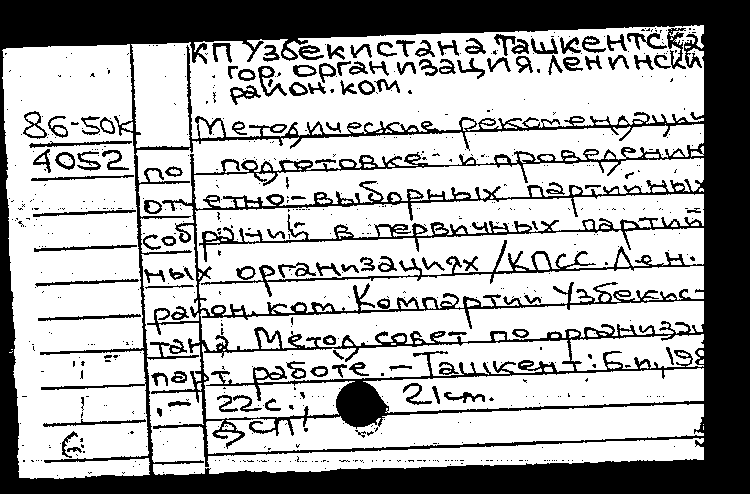 КП Узбекистана. Ташкентска
гор. организация. Ленински
район. ком.
86-50К
Методические рекомендации
4052
по подготовке и проведению
отчетно-выборных партийных
собраний в первичных партий
ных организациях /КПСС. Лен.
район. ком. Компартии Узбекис-
тана. Метод. совет по организац
парт. работе. – Ташкент: Б.и., 198
. – 22 с.; 21 cm.
ДСП!